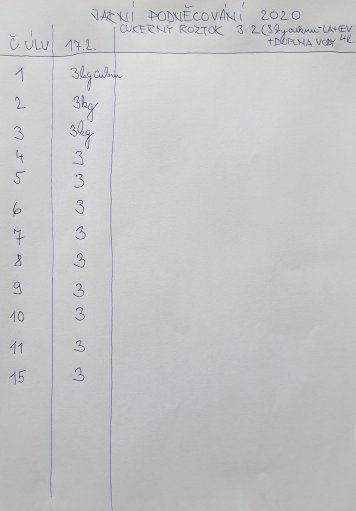 JARNÍ PODNĚCOVÁNÍ 2020
CUKERNÝ ROZTOK 3:2 (3kg cukru - LAHEV
+ DOPLNA VODY 4L
Č. ÚLU 17.2.
1 3kg cukru
2 3kg
3 3kg
4 3
5 3
6 3
7 3
8 3
9 3
10 3
11 3
15 3